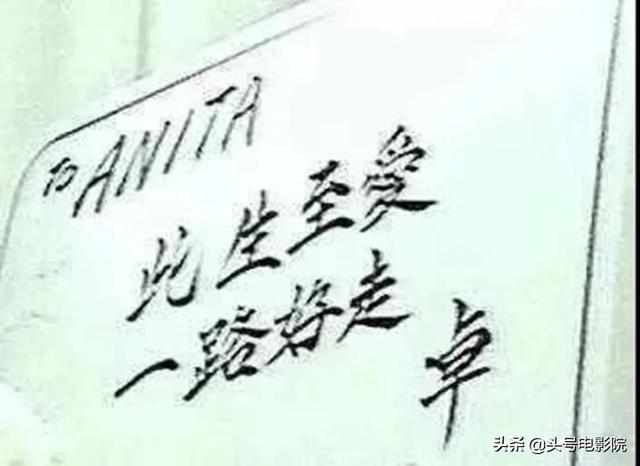 TO ANITA
此生至愛
一路好走
卓
头条 @头号电影院